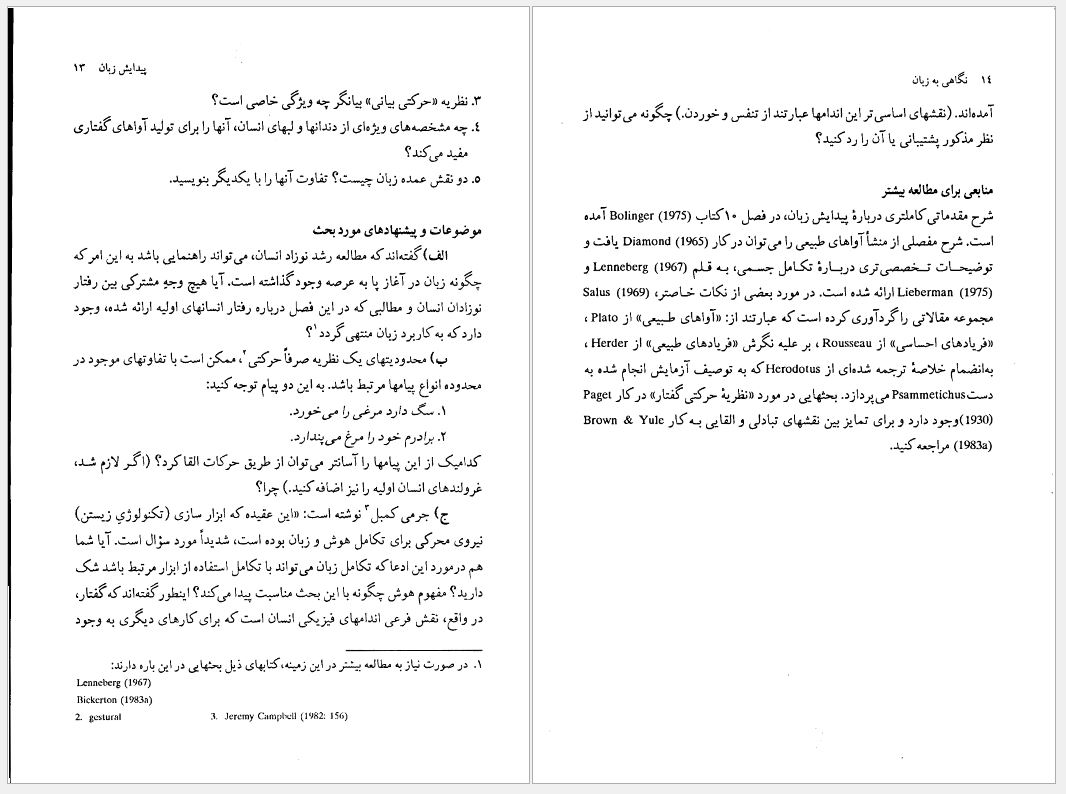 پیدایش زبان ۱۳
۳. نظریه «حرکتی بیانی» بیانگر چه ویژگی خاصی است؟
٤. چه مشخصه‌های ویژه‌ای از دندانها و لبهای انسان، آنها را برای تولید آواهای گفتاری
مفید می‌کند؟
۵. دو نقش عمده زبان چیست؟ تفاوت آنها را با یکدیگر بنویسید.
موضوعات و پیشنهادهای مورد بحث
الف) گفته‌اند که مطالعه رشد نوزاد انسان، می‌تواند راهنمایی باشد به این امر که
چگونه زبان در آغاز پا به عرصه وجود گذاشته است. آیا هیچ وجهِ مشترکی بین رفتار
نوزادان انسان و مطالبی که در این فصل درباره رفتار انسانهای اولیه ارائه شده، وجود
دارد که به کاربرد زبان منتهی گردد۱؟
ب) محدودیتهای یک نظریه صرفاً حرکتی۲، ممکن است با تفاوتهای موجود در
محدوده انواع پیامها مرتبط باشد. به این دو پیام توجه کنید:
۱. سگ دارد مرغی را می‌خورد.
۲. برادرم خود را مرغ می‌پندارد.
کدامیک از این پیامها را آسانتر می‌توان از طریق حرکات القا کرد؟ (اگر لازم شد،
غرولندهای انسان اولیه را نیز اضافه کنید.) چرا؟
ج) جرمی کمبل۳ نوشته است: «این عقیده که ابزار سازی (تکنولوژیِ زیستن)
نیروی محرکی برای تکامل هوش و زبان بوده است، شدیداً مورد سؤال است. آیا شما
هم درمورد این ادعا که تکامل زبان می‌تواند با تکامل استفاده از ابزار مرتبط باشد شک
دارید؟ مفهوم هوش چگونه با این بحث مناسبت پیدا می‌کند؟ اینطور گفته‌اند که گفتار،
در واقع، نقش فرعی اندامهای فیزیکی انسان است که برای کارهای دیگری به وجود
۱. در صورت نیاز به مطالعه بیشتر در این زمینه، کتابهای ذیل بحثهایی در این باره دارند:
Lenneberg (1967)
Bickerton (1983a)
2. gestural 3. Jeremy Campbell (1982: 156)
۱٤ نگاهی به زبان
آمده‌اند. (نقشهای اساسی‌تر این اندامها عبارتند از تنفس و خوردن.) چگونه می‌توانید از
نظر مذکور پشتیبانی یا آن را رد کنید؟
منابعی برای مطالعه بیشتر
شرح مقدماتی کاملتری دربارهٔ پیدایش زبان، در فصل ۱۰ کتاب Bolinger (1975) آمده
است. شرح مفصلی از منشأ آواهای طبیعی را می‌توان در کار Diamond (1965) یافت و
توضیحات تخصصی‌تری دربارهٔ تکامل جسمی، به قلم Lenneberg (1967) و
Lieberman (1975) ارائه شده است. در مورد بعضی از نکات خاصتر، Salus (1969)
مجموعه مقالاتی را گردآوری کرده است که عبارتند از: «آواهای طبیعی» از Plato ،
«فریادهای احساسی» از Rousseau ، بر علیه نگرش «فریادهای طبیعی» از Herder ،
به‌انضمام خلاصهٔ ترجمه شده‌ای از Herodotus که به توصیف آزمایش انجام شده به
دست Psammetichus می‌پردازد. بحثهایی در مورد «نظریهٔ حرکتی گفتار» در کار Paget
(1930) وجود دارد و برای تمایز بین نقشهای تبادلی و القایی به کار Brown & Yule
(1983a) مراجعه کنید.